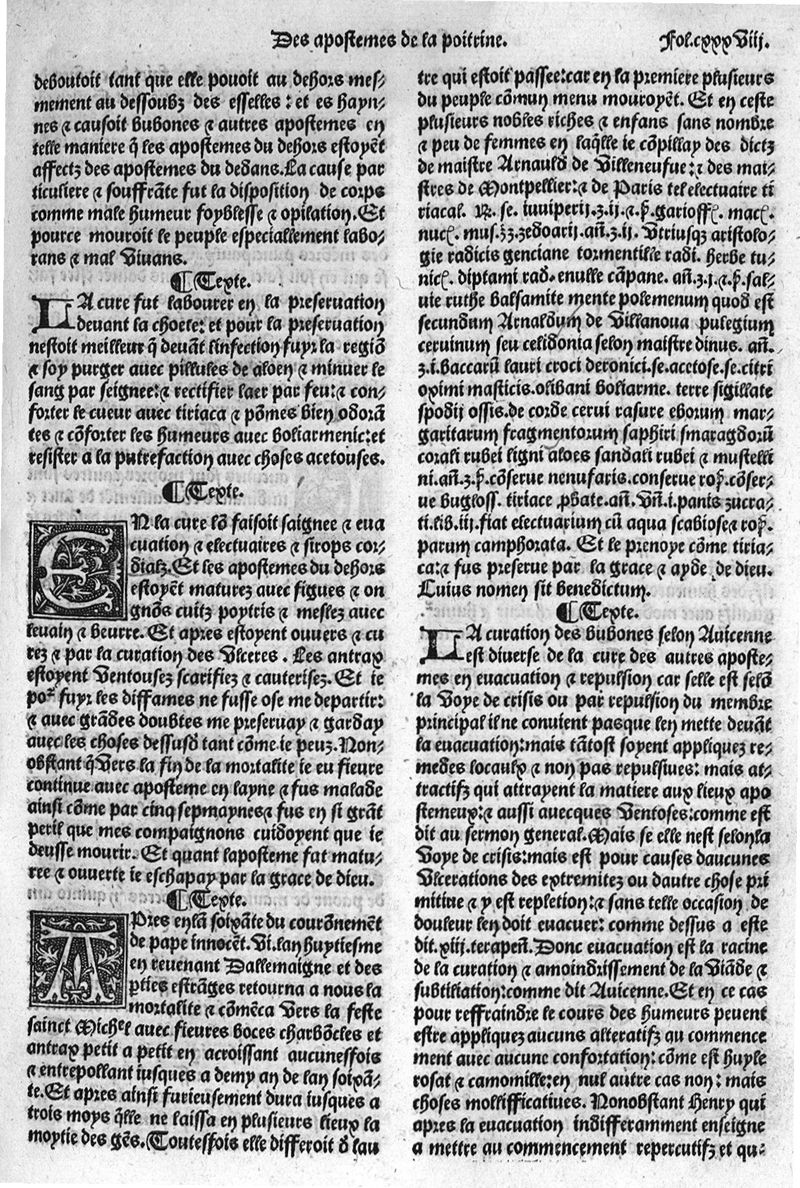 Des apostemes de la poitrine. Fol.cxxxViij.
deboutoit tant que elle pouoit au dehors mes/
mement au dessoubz des esselles: et es hayn/
nes ⁊ causoit bubones ⁊ autres apostemes en
telle maniere q̃ les apostemes du dehors estoyẽt
affectz des apostemes du dedans.La cause par
ticuliere ⁊ souffrãte fut la disposition de corps
comme male humeur foyblesse ⁊ opilation.Et
pource mouroit le peuple especiallement labo/
rans ⁊ mal Viuans.
¶Texte.
LA cure fut labourer en la preseruation
deuant la choete: et pour la preseruation
nestoit meilleur q̃ deuãt linfection fuyr la regiõ
⁊ soy purger auec pillules de aloen ⁊ minuer le
sang par seignee:⁊ rectifier laer par feu:⁊ con/
forter le cueur auec tiriaca ⁊ põmes bien odorã
tes ⁊ cõforter les humeurs auec boliarmenic:et
resister a la putrefaction auec choses acetouses.
¶Texte.
EN la cure lõ faisoit saignee ⁊ eua
cuation ⁊ electuaires ⁊ sirops cor/
diaulz.Et les apostemes du dehors
estoyẽt maturez auec figues ⁊ on
gnõs cuitz poytris ⁊ meslez auec
leuain ⁊ beurre. Et apres estoyent ouuers ⁊ cu
rez ⁊ par la curation des Vlceres . Les antrax
estoyent Ventousez scarifiez ⁊ cauterisez. Et ie
por̃ fuyr les diffames ne fusse ose me departir:
⁊ auec grãdes doubtes me preseruay ⁊ garday
auec les choses dessusd̃ tant cõme ie peuz.Non/
obstant q̃ Vers la fin de la mortalite ie eu fieure
continue auec aposteme en layne ⁊ fus malade
ainsi cõme par cinq sepmaynes⁊ fus en si grãt
peril que mes compaignons cuidoyent que ie
deusse mourir. Et quant laposteme fat matu/
re ⁊ ouuerte ie eschapay par la grace de dieu.
¶Texte.
APres en lã soixãte du courõnemẽt
de pape innocẽt. Vi.lan huytiesme
en reuenant Dallemaigne et des
pties estrãges retourna a nous la
mortalite ⁊ cõmẽca Vers la feste
sainct Michel auec fieures boces charbõcles et
antrax petit a petit en acroissant aucunesfois
⁊ entrepollant iusques a demy an de lan soixã/
te.Et apres ainsi furieusement dura iusques a
trois moys q̃lle ne laissa en plusieurs lieux la
moytie des gẽs.(Toutesfois elle differoit d̃ lau
tre qui estoit passee:car en la premiere plusieurs
du peuple cõmun menu mouroyẽt. Et en ceste
plusieurs nobles riches ⁊ enfans sans nombre
⁊ peu de femmes en laq̃lle ie cõpillay des dictz
de maistre Arnauld de Villeneufue:⁊ des mai/
stres de Montpellier:⁊ de Paris tel electuaire ti
riacal. ℞. se. iuuiperij.ʒ.ij.⁊.p̃.garioff. mac.
nuc. mus.ʒʒ.zedoarij.añ.ʒ.ij. Vtriusq̃ aristolo/
gie radicis genciane tormentille radi. herbe tu/
nic. diptami rad. enulle cãpane. añ.ʒ.j.⁊.p̃.sal/
uie ruthe balsamite mente polemenum quod est
secundum Arnaldum de Villanoua pulegium
ceruinum seu celidonia selon maistre dinus. añ.
ʒ.i.baccarũ lauri croci deronici.se.acetose.se.citri
oximi masticis.olibani boliarme. terre sigillate
spodij ossis.de corde cerui rasure eborum mar/
garitarum fragmentorum saphiri smaragdorũ
corali rubei ligni aloes sandali rubei ⁊ mustelli
ni.añ.ʒ.p̃.cõserue nenufaris.conserue ro.cõser/
ue bugloss. tiriace p̱bate.añ.Vñ.i.panis zucra/
ti.lib.iij.fiat electuarium cũ aqua scabiose⁊ ro.
parum camphorata. Et le prenoye cõme tiria/
ca:⁊ fus preserue par la grace ⁊ ayde de dieu.
Cuius nomen sit benedictum.
¶Texte.
LA curation des bubones selon Auicenne
est diuerse de la cure des autres aposte/
mes en euacuation ⁊ repulsion car selle est selõ
la Voye de crisis ou par repulsion du membre
principal il ne conuient pasque len mette deuãt
la euacuation:mais tãtost soyent appliquez re/
medes locaulx ⁊ non pas repulsiues: mais at/
tractifz qui attrayent la matiere aux lieux apo
stemeux:⁊ aussi auecques Ventoses:comme est
dit au sermon general.Mais se elle nest selonla
Voye de crisis:mais est pour causes daucunes
Vlcerations des extremitez ou dautre chose pri
mitiue ⁊ y est repletion:⁊ sans telle occasion de
douleur len doit euacuer: comme dessus a este
dit.xiij.terapeñ.Donc euacuation est la racine
de la curation ⁊ amoindrissement de la Viãde ⁊
subtiliation:comme dit Auicenne.Et en ce cas
pour reffraindre le cours des humeurs peuent
estre appliquez aucuns alteratifz qu commence
ment auec aucune confortation: cõme est huyle
rosat ⁊ camomille:en nul autre cas non: mais
choses mollifficatiues. Nonobstant Henry qui
apres la euacuation indifferamment enseigne
a mettre au commencement repercutifz et qu-